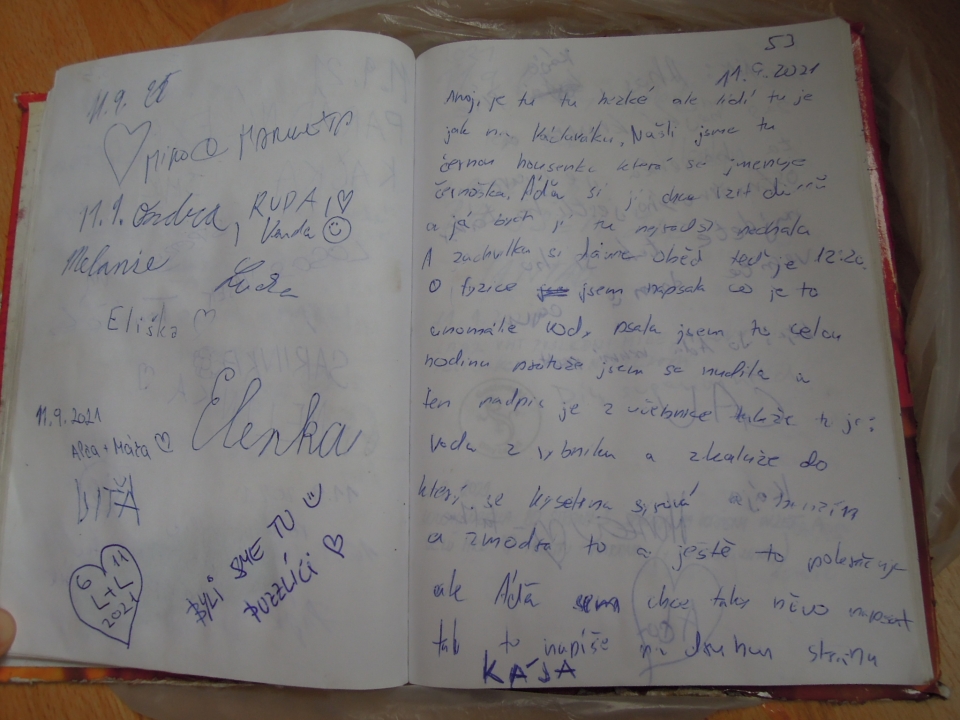 11.9. 21
MIRO MARKÉTA
11.9. Ondra, RUDA,
Vanda
Melanie Lucka
Eliška
Elenka
11.9.2021
Apča + Máťa
VÍŤA
6 11
L+L
2021
BYLI SME TU
PUZZLÍCI
53
11.9.2021
Ahoj, je tu tu hezké ale lidí tu je
jak na Václaváku, Našli jsme tu
černou housenku která se jmenuje
černoška. Áďa si j chce vzít domů
a já bych ji tu nejradši nechala
A zachvilku si dáme oběd teď je 12:20.
O fyzice jsem napsala co je to
anomálie vody psala jsem to celou
hodinu protože jsem se nudila a
ten nadpis je z učebnice takže to je:
voda z rybníku a zkaluže do
které se kyselina sírová a
a zmodra to a ještě to
ale Áďa chce taky něvo napsat
tak to napíše na druhou stránu
KÁJA